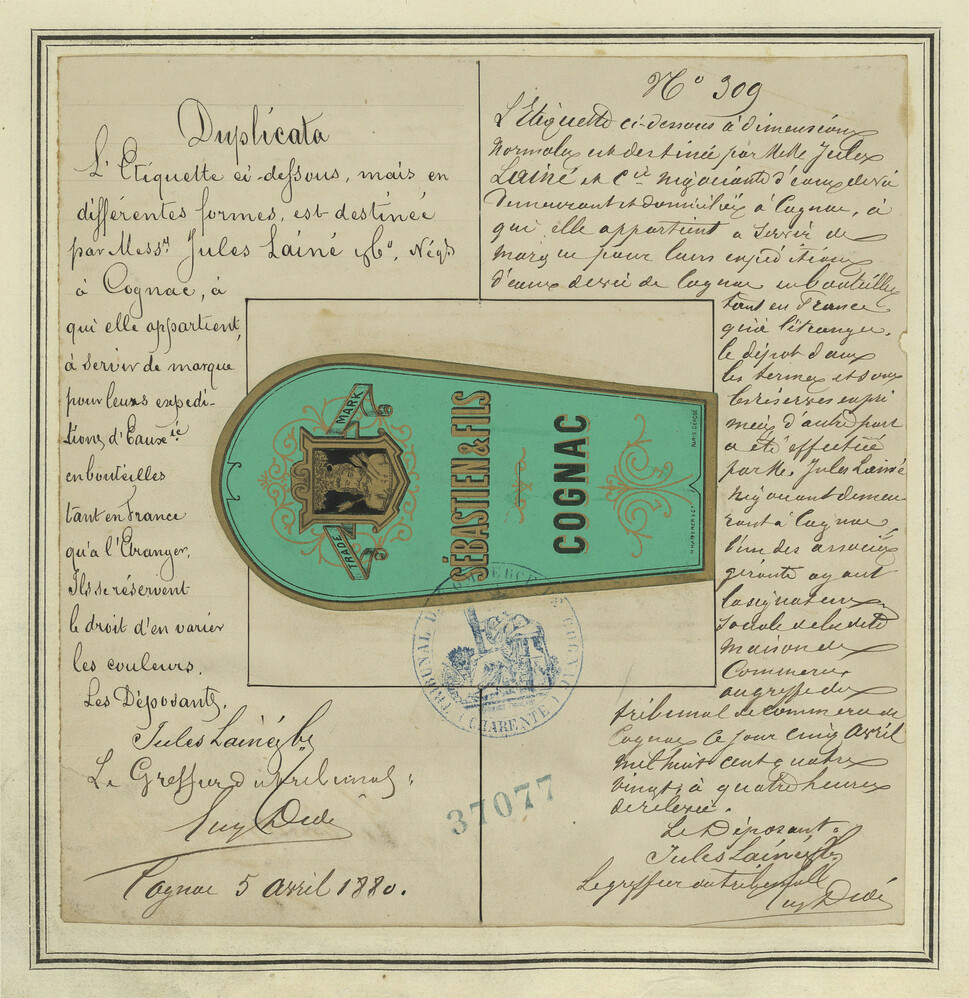 Duplicata
L'Etiquette ci-dessous, mais en
différentes formes, est destinée
par Mess.rs Jules Lainé & Co, Négts
à Cognac, à
qui elle appartient,
à servir de marque
pour leurs expédi-
tions d'Eaux
en bouteilles
tant en France
qu'à l'Etranger.
Ils se réservent
le droit d'en varier
les couleurs.
Les Déposants,
Jules Lainé & Co
Le Greffier du tribunal,
Cognac 5 avril 1880.
No 309
L'Etiquette ci-dessous à dimensions
Normales est destinée par MM. Jules
Lainé et Cie négociants d'eaux de vie
demeurant et domiciliés à Cognac, à
qui elle appartient à servir de
marque pour leurs expéditions
d'eaux de vie de Cognac en bouteilles
tant en France
qu'à l'étranger.
Le dépôt dans
les termes et sous
les réserves expri-
mées d'autre part
a été effectué
par M. Jules Lainé
négociant demeu-
rant à Cognac
l'un des associés
gérants ayant
la signature
sociale de la dite
maison de
Commerce
au greffe du
tribunal de commerce de
Cognac ce jour cinq Avril
mil huit cent quatre
vingt à quatre heures
de relevée.
Le Déposant.
Jules Lainé & Co
Le greffier du tribunal
TRADE MARK
SÉBASTIEN & FILS
COGNAC
PARIS DÉPOSÉ
TRIBUNAL DE COMMERCE DE COGNAC
(CHARENTE)
37077